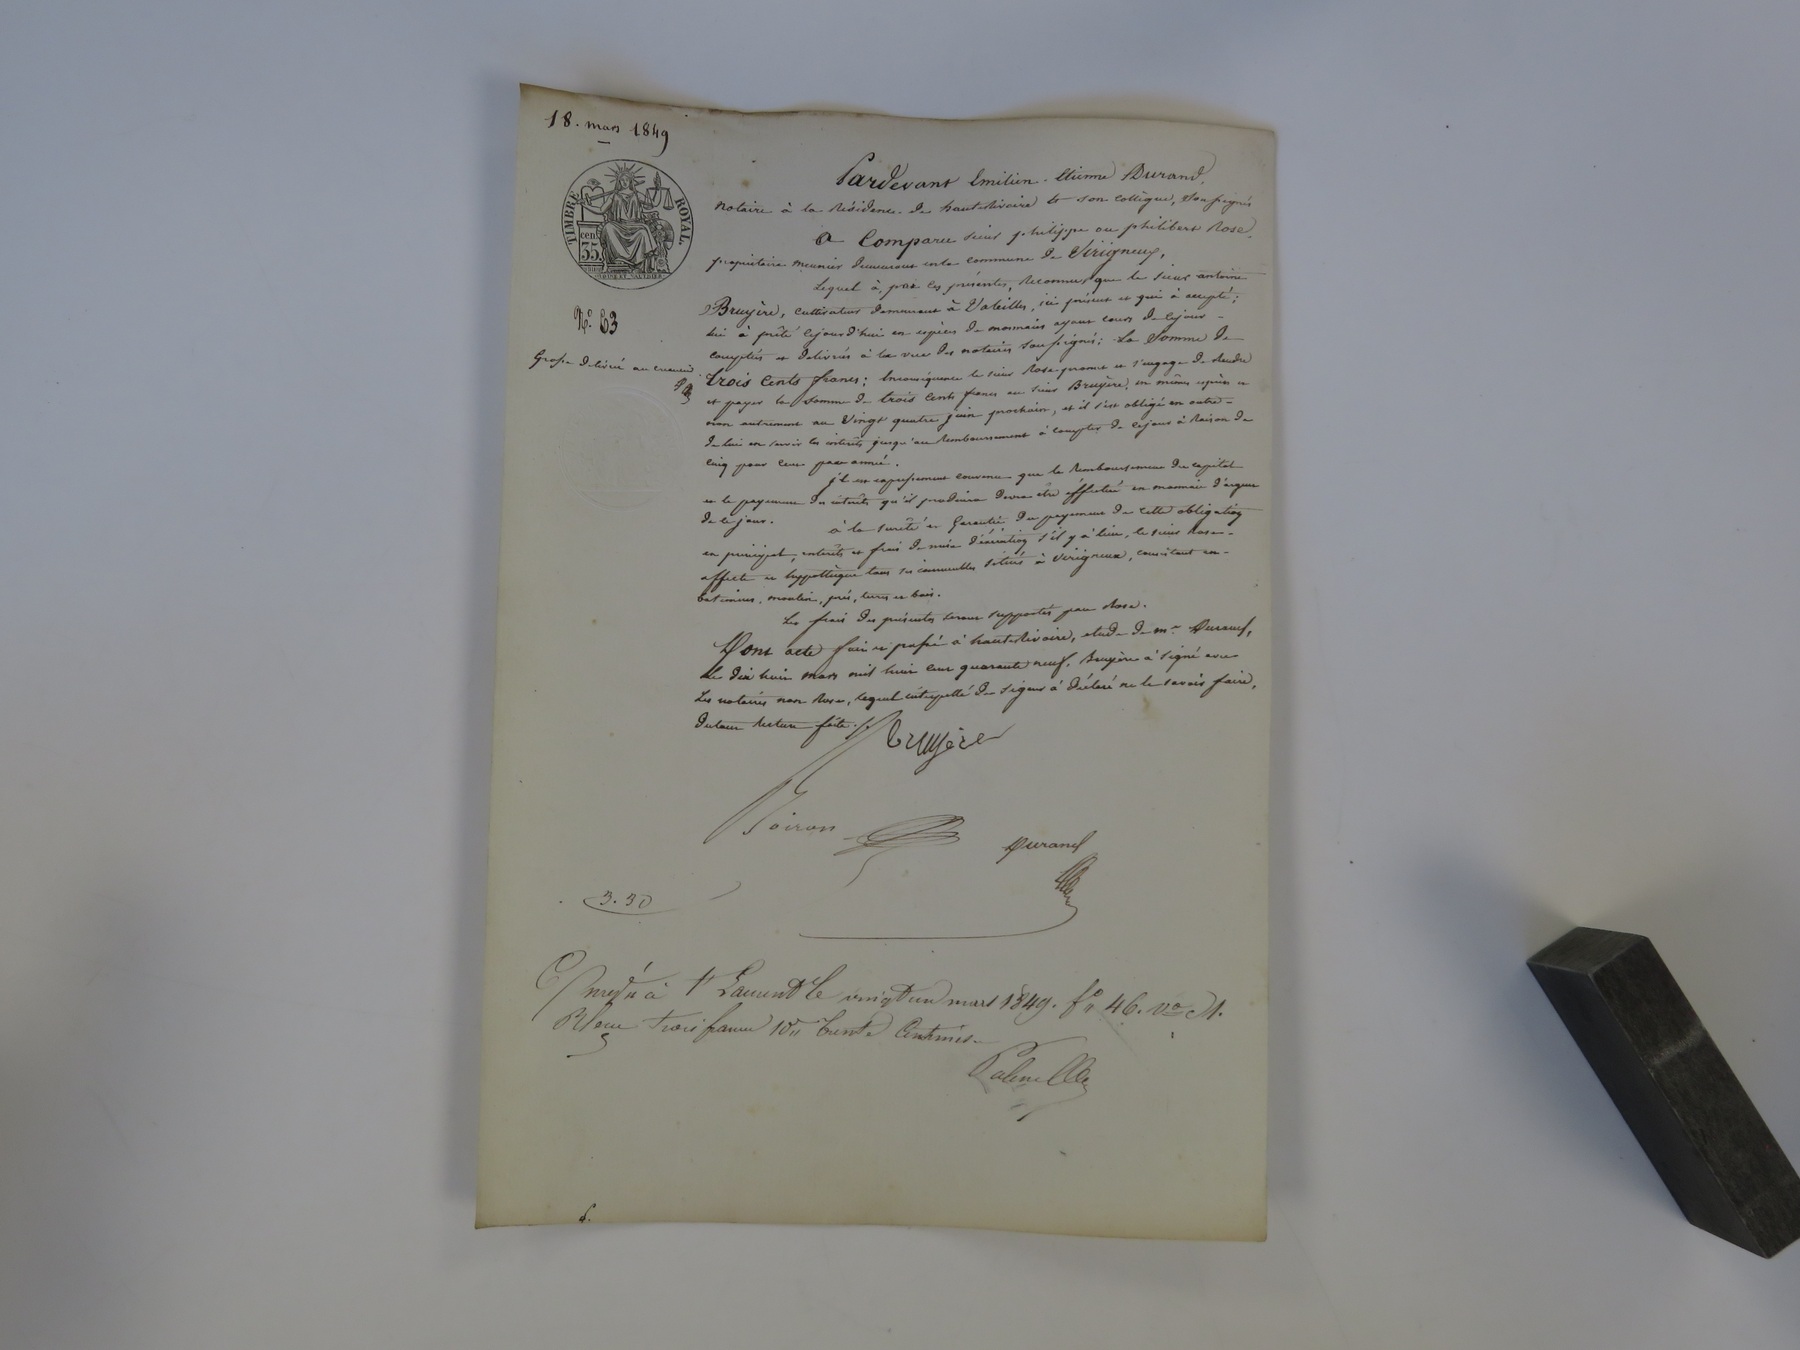 18. mars 1849
TIMBRE ROYAL
cen.
35
N.° 63
Grosse délivré au créancier
Pardevant Emilien-Etienne Durand,
notaire à la Résidence de hauterivoire & son collègue, soussignés
a Comparu sieur philippe ou philibert Rose,
propriétaire meunier demeurant en la commune de Virigneux,
Lequel à, par ces présentes, reconnu que le sieur antoine
Bruyère, cultivateur demeurant à Valeille, ici présent et qui à accepté;
lui à prêté cejourd'hui en espèces de monnaies ayant cours de ce jour
comptés et délivrés à la vue des notaires soussignés: La Somme de
trois Cents francs; Enconséquence le sieur Rose promet et s'engage de Rendre
et payer la Somme de trois Cents francs au sieur Bruyère, en mêmes espèces et
non autrement au vingt quatre juin prochain, et il s'est obligé en outre
de lui en servir les intérêts jusqu'au Remboursement à compter de ce jour à Raison de
cinq pour cent par année.
il est expressement convenu que le Remboursement du capital
et le payement des intérêts qu'il produira devra être éffectué en monnaie d'argent
de ce jour.
à la sureté et Garantie du payement de cette obligation
en principal, intérêts et frais de mise d'éxécution s'il y à lieu, le sieur Rose
affecte et hyppothèque tous ses immeubles situés à virigneux, consistant en
batiments, moulin, prés, terres et bois.
Les frais des présentes seront supportés par Rose.
Dont acte fait et passé à hauterivoire, étude de m.e Durand,
Le dix huit mars mil huit cent quarante neuf, Bruyère à signé avec
Les notaires non Rose, lequel interpellé de signer à déclaré ne le savoir faire,
du tout lecture faite./.
Bruyère
Noiron
Durand
3.30
Enreg.é à s.t Laurent le vingt un mars 1849. f.o 46. v.o c 1.
R. trois francs 10.e trente Centimes